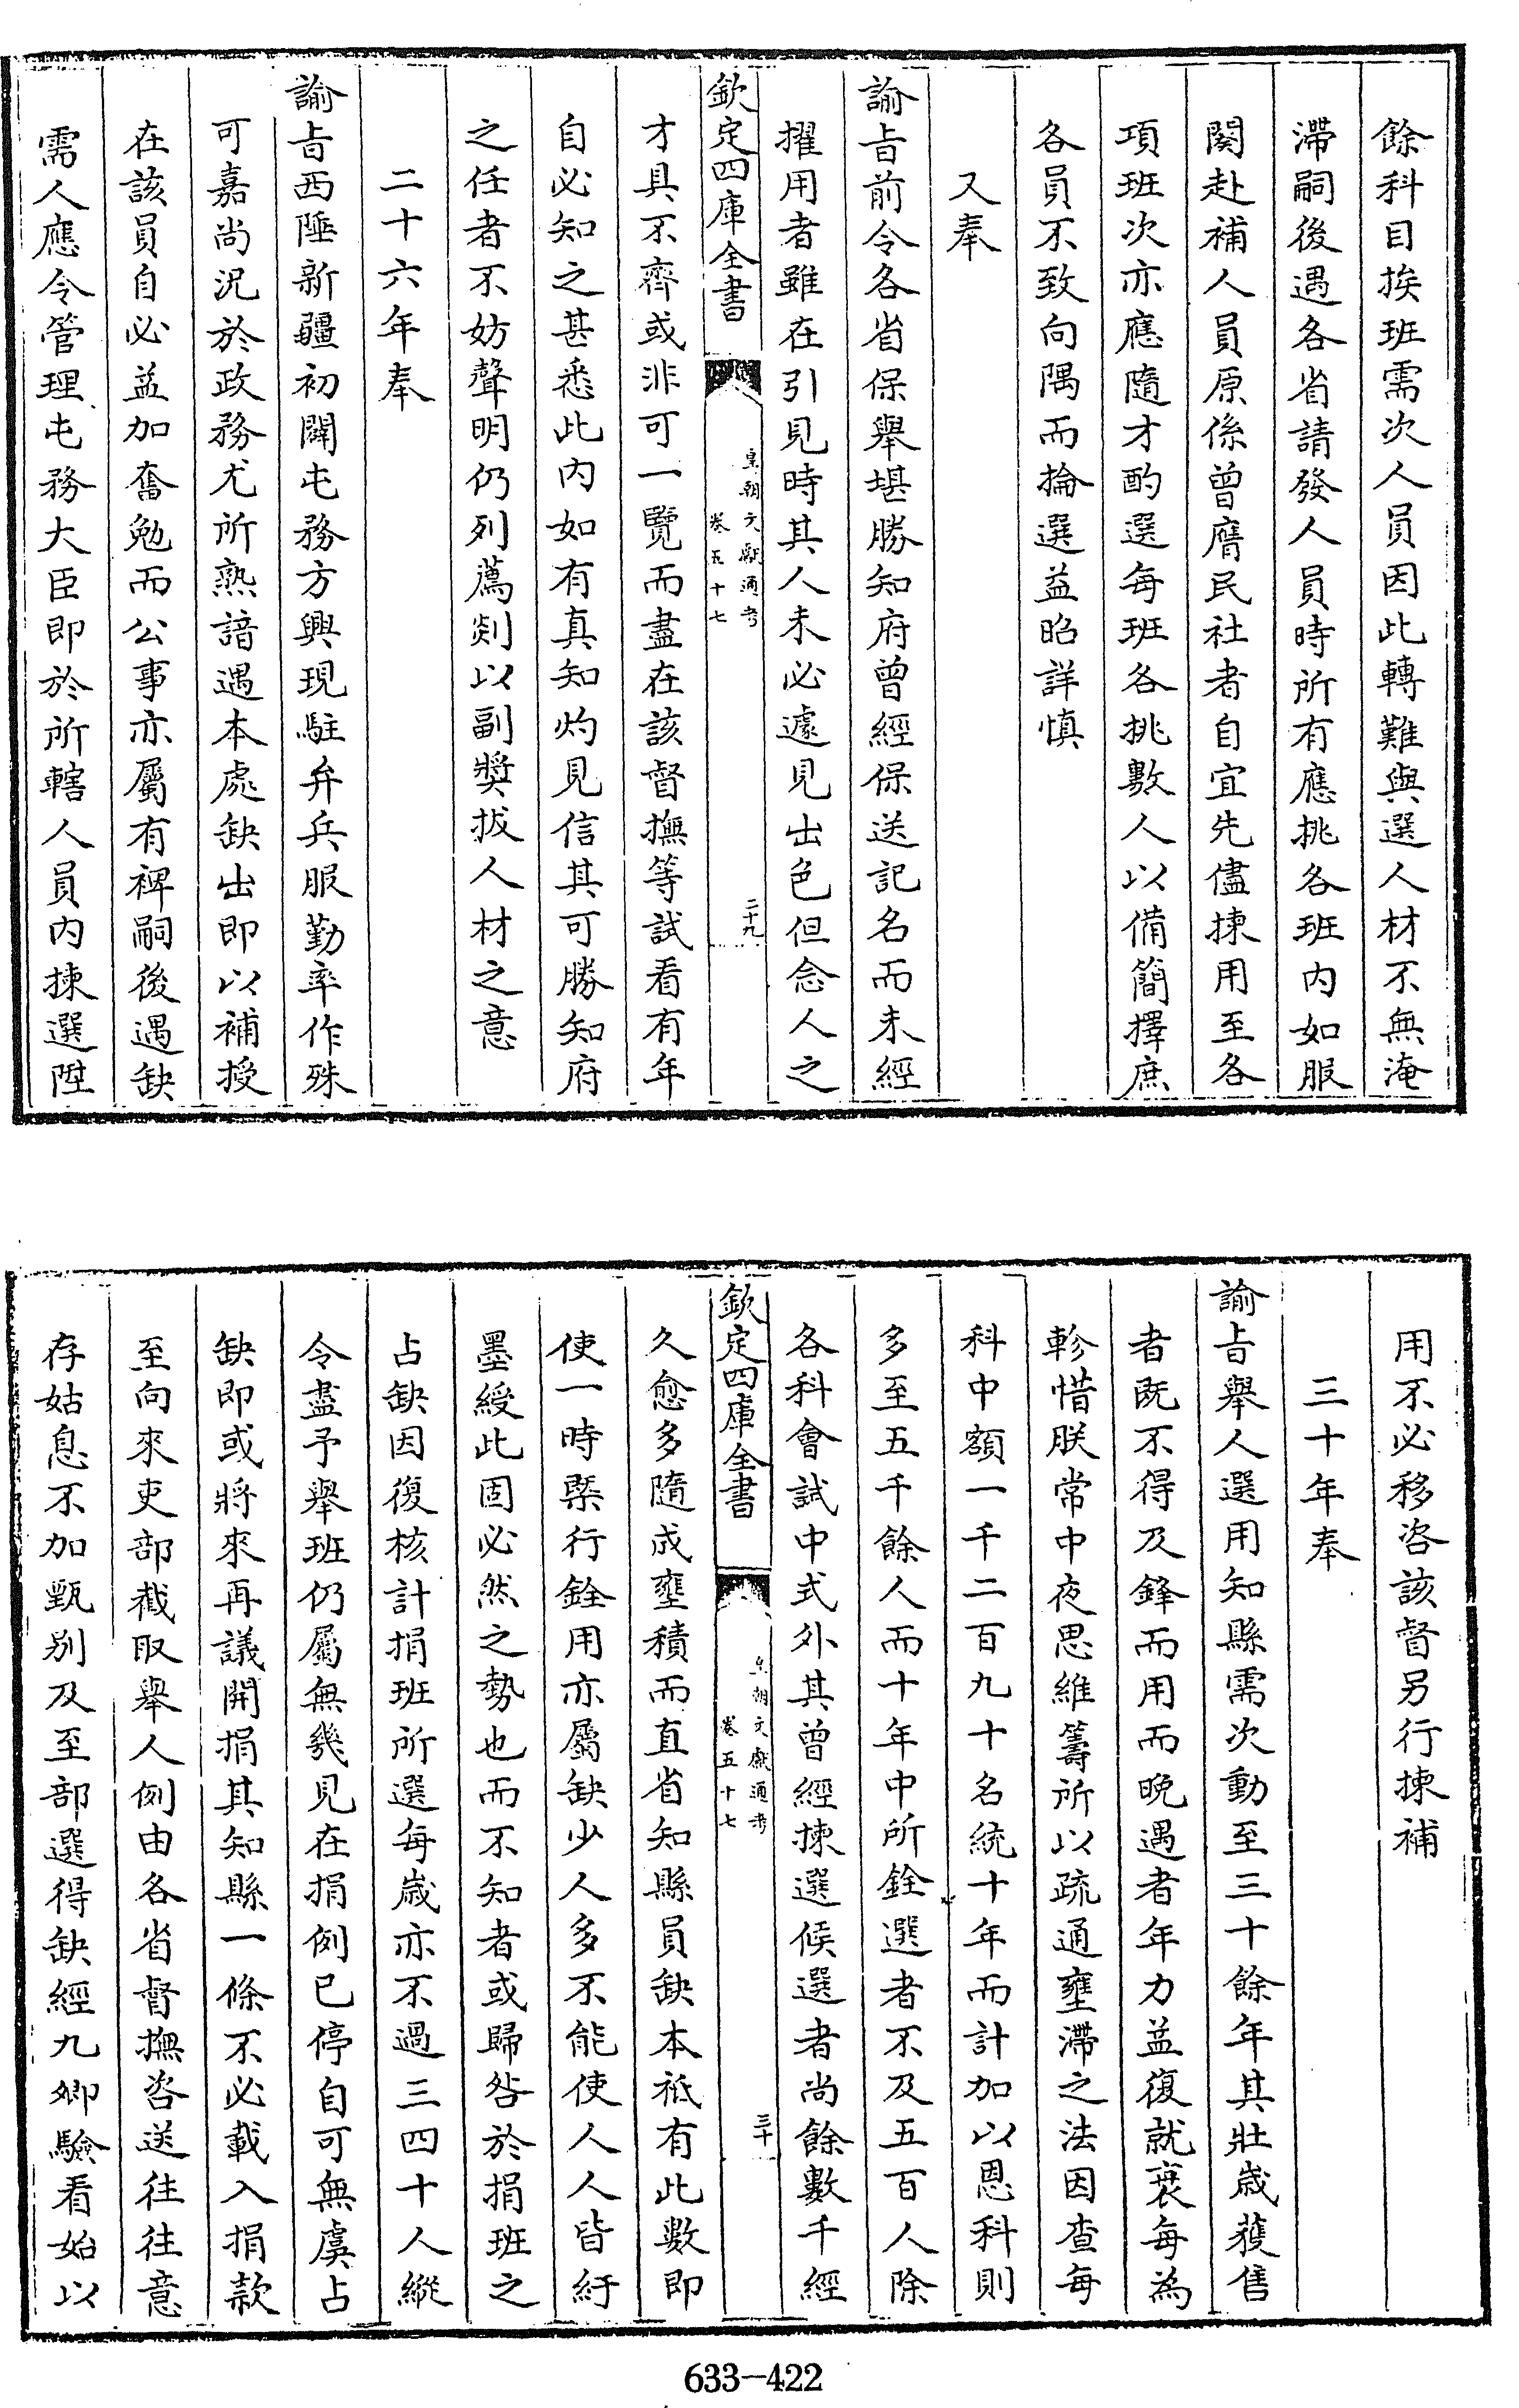 餘科目挨班需次人員因此轉難與選人材不無淹
滯嗣後遇各省請發人員時所有應挑各班內如服
闋赴補人員原係曾膺民社者自宜先儘揀用至各
項班次亦應隨才酌選每班各挑數人以備簡擇庶
各員不致向隅而掄選益昭詳慎
又奉
諭旨前令各省保舉堪勝知府曾經保送記名而未經
擢用者雖在引見時其人未必遽見出色但念人之
欽定四庫全書
皇朝文獻通考
卷五十七
二十九
才具不齊或非可一覽而盡在該督撫等試看有年
自必知之甚悉此內如有真知灼見信其可勝知府
之任者不妨聲明仍列薦剡以副獎拔人材之意
二十六年奉
諭旨西陲新疆初闢屯務方興現駐弁兵服勤率作殊
可嘉尚況於政務尤所熟諳遇本處缺出即以補授
在該員自必益加奮勉而公事亦屬有裨嗣後遇缺
需人應令管理屯務大臣即於所轄人員內揀選陞
用不必移咨該督另行揀補
三十年奉
諭旨舉人選用知縣需次動至三十餘年其壯歲獲售
者既不得及鋒而用而晚遇者年力益復就衰每為
軫惜朕常中夜思維籌所以疏通壅滯之法因查每
科中額一千二百九十名統十年而計加以恩科則
多至五千餘人而十年中所銓選者不及五百人除
各科會試中式外其曾經揀選候選者尚餘數千經
欽定四庫全書
皇朝文獻通考
卷五十七
三十
久愈多隨成壅積而直省知縣員缺本祇有此數即
使一時槩行銓用亦屬缺少人多不能使人人皆紆
墨綬此固必然之勢也而不知者或歸咎於捐班之
占缺因復核計捐班所選每歲亦不過三四十人縱
令盡予舉班仍屬無幾見在捐例已停自可無虞占
缺即或將來再議開捐其知縣一條不必載入捐款
至向來吏部截取舉人例由各省督撫咨送往往意
存姑息不加甄別及至部選得缺經九卿驗看始以
633-422